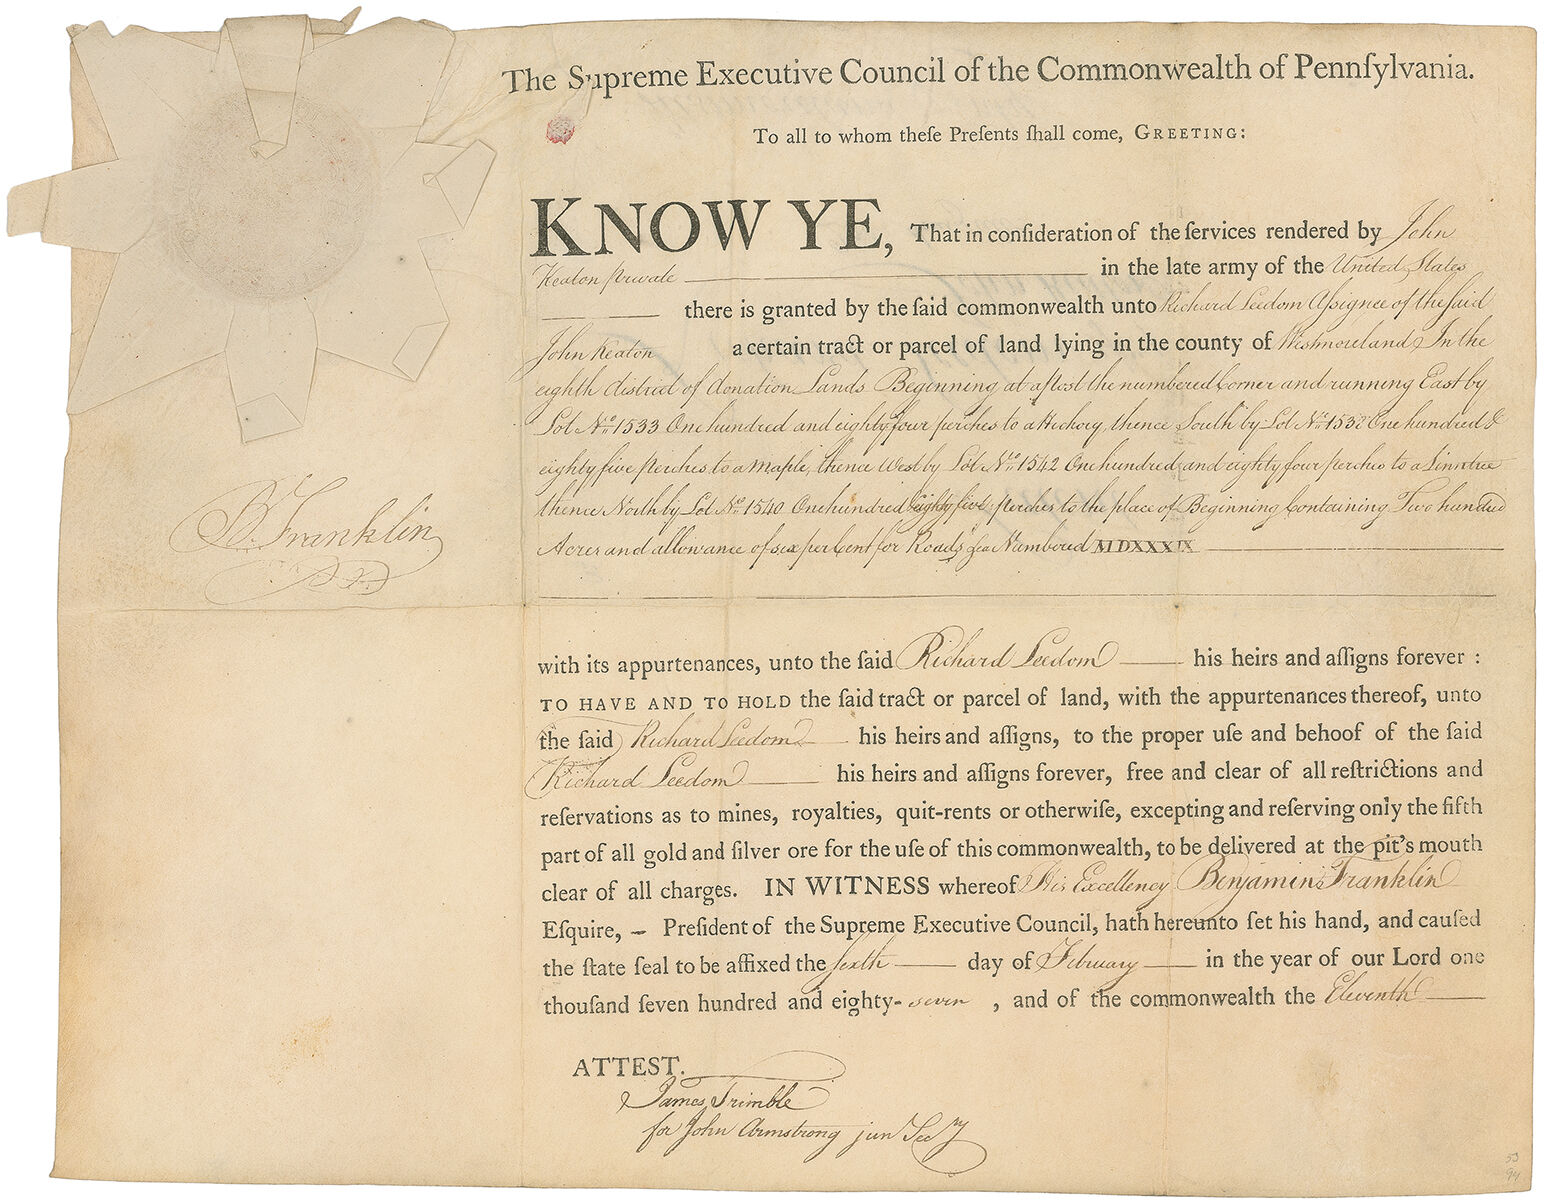 The Supreme Executive Council of the Commonwealth of Pennſylvania.
To all to whom theſe Preſents ſhall come, GREETING:
KNOW YE, That in conſideration of the ſervices rendered by John
Keaton private in the late army of the United States
there is granted by the ſaid commonwealth unto Richard Leedom Aſsignee of the ſaid
John Keaton a certain tract or parcel of land lying in the county of Westmoreland In the
eighth district of donation Lands Beginning at a post the numbered Corner and running East by
Lot No. 1533 One hundred and eighty four perches to a Hickory, thence South by Lot No. 1538 One hundred &
eighty five perches to a Maple, thence West by Lot No. 1542 One hundred and eighty four perches to a Linntree
thence North by Lot No. 1540 One hundred eighty five perches to the place of Beginning Containing Two hundred
Acres and allowance of six per Cent for Roads &ca Numbered MDXXXIX
B. Franklin
with its appurtenances, unto the ſaid Richard Leedom his heirs and aſſigns forever :
TO HAVE AND TO HOLD the ſaid tract or parcel of land, with the appurtenances thereof, unto
the ſaid Richard Leedom his heirs and aſſigns, to the proper uſe and behoof of the ſaid
Richard Leedom his heirs and aſſigns forever, free and clear of all reſtrictions and
reſervations as to mines, royalties, quit-rents or otherwiſe, excepting and reſerving only the fifth
part of all gold and ſilver ore for the uſe of this commonwealth, to be delivered at the pit's mouth
clear of all charges. IN WITNESS whereof His Excellency Benjamin Franklin
Eſquire, – Preſident of the Supreme Executive Council, hath hereunto ſet his hand, and cauſed
the ſtate ſeal to be affixed the ſixth day of February in the year of our Lord one
thouſand ſeven hundred and eighty-seven , and of the commonwealth the Eleventh
ATTEST.
James Trimble
for John Armstrong jun Secy
53
94